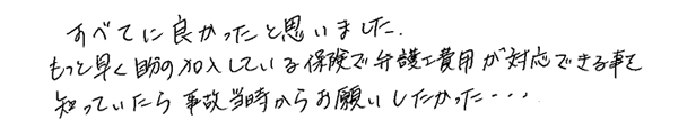 すべてに良かったと思いました.
もっと早く自分の加入している保険で弁護士費用が対応できる事を
知っていたら事故当時からお願いしたかった・・・